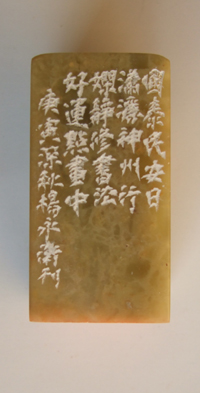 國泰民安日
瀟灑神州行
嫻靜修書法
好運點畫中
庚寅深秋楊永衛刊